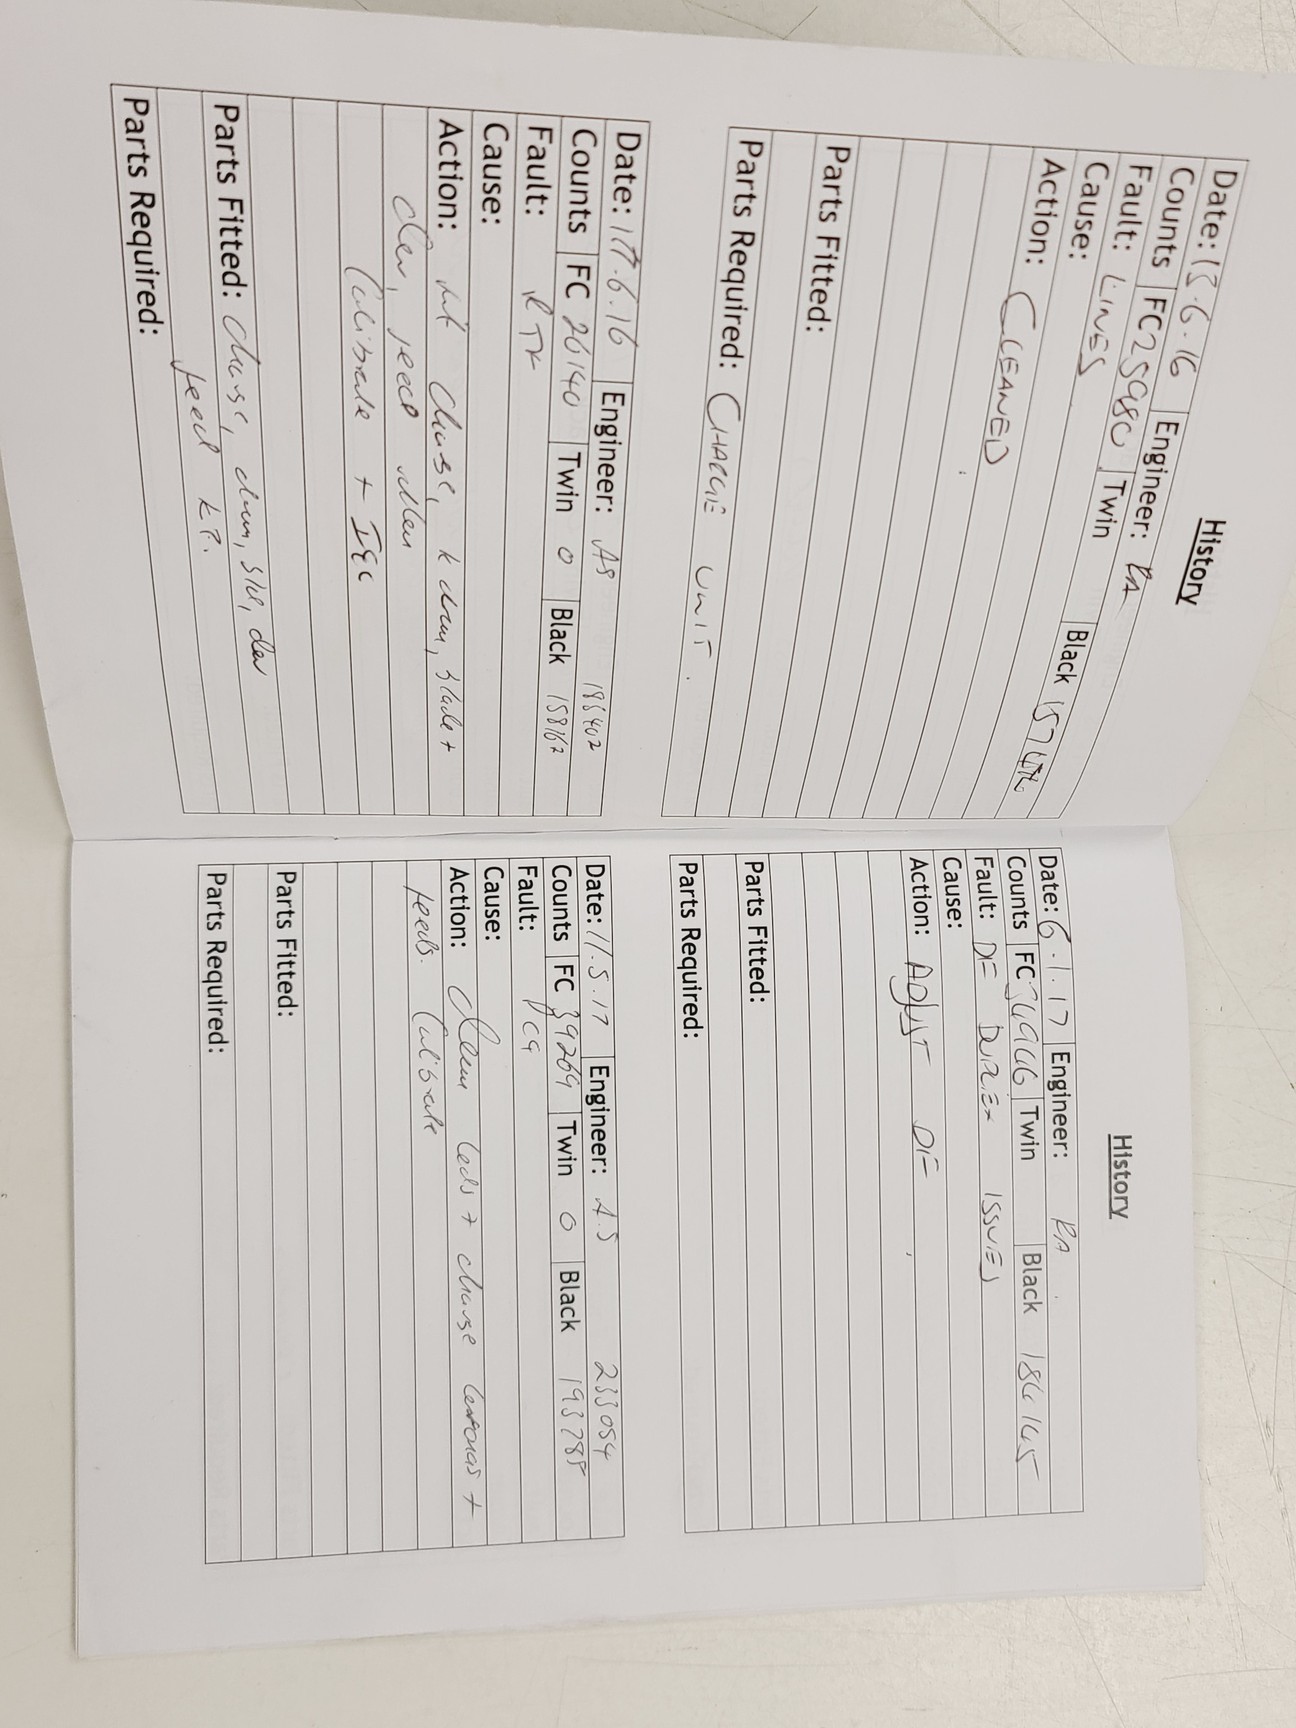 History
Date: 13.6.16 Engineer: RA
Counts FC 25980 Twin Black
Fault: LINES
Cause:
Action: CLEANED
Parts Fitted:
Parts Required: CHARGE UNIT.
Date: 17.6.16 Engineer: AS 185402
Counts FC 26140 Twin 0 Black 158162
Fault: RTK
Cause:
Action: k drum, blade +
dev, feed
Calibrate +
Parts Fitted: drum, dev
feed kT.
Parts Required:
History
Date: 6.1.17 Engineer: RA
Counts FC Twin Black
Fault: DF ISSUES
Cause:
Action: ADJUST DF
Parts Fitted:
Parts Required:
Date: 11.5.17 Engineer: A.S 233054
Counts FC 39269 Twin 0 Black 193788
Fault:
Cause:
Action: Clean leds + charge coronas +
feeds. Calibrate
Parts Fitted:
Parts Required: